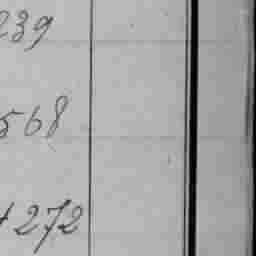 239
568
+272